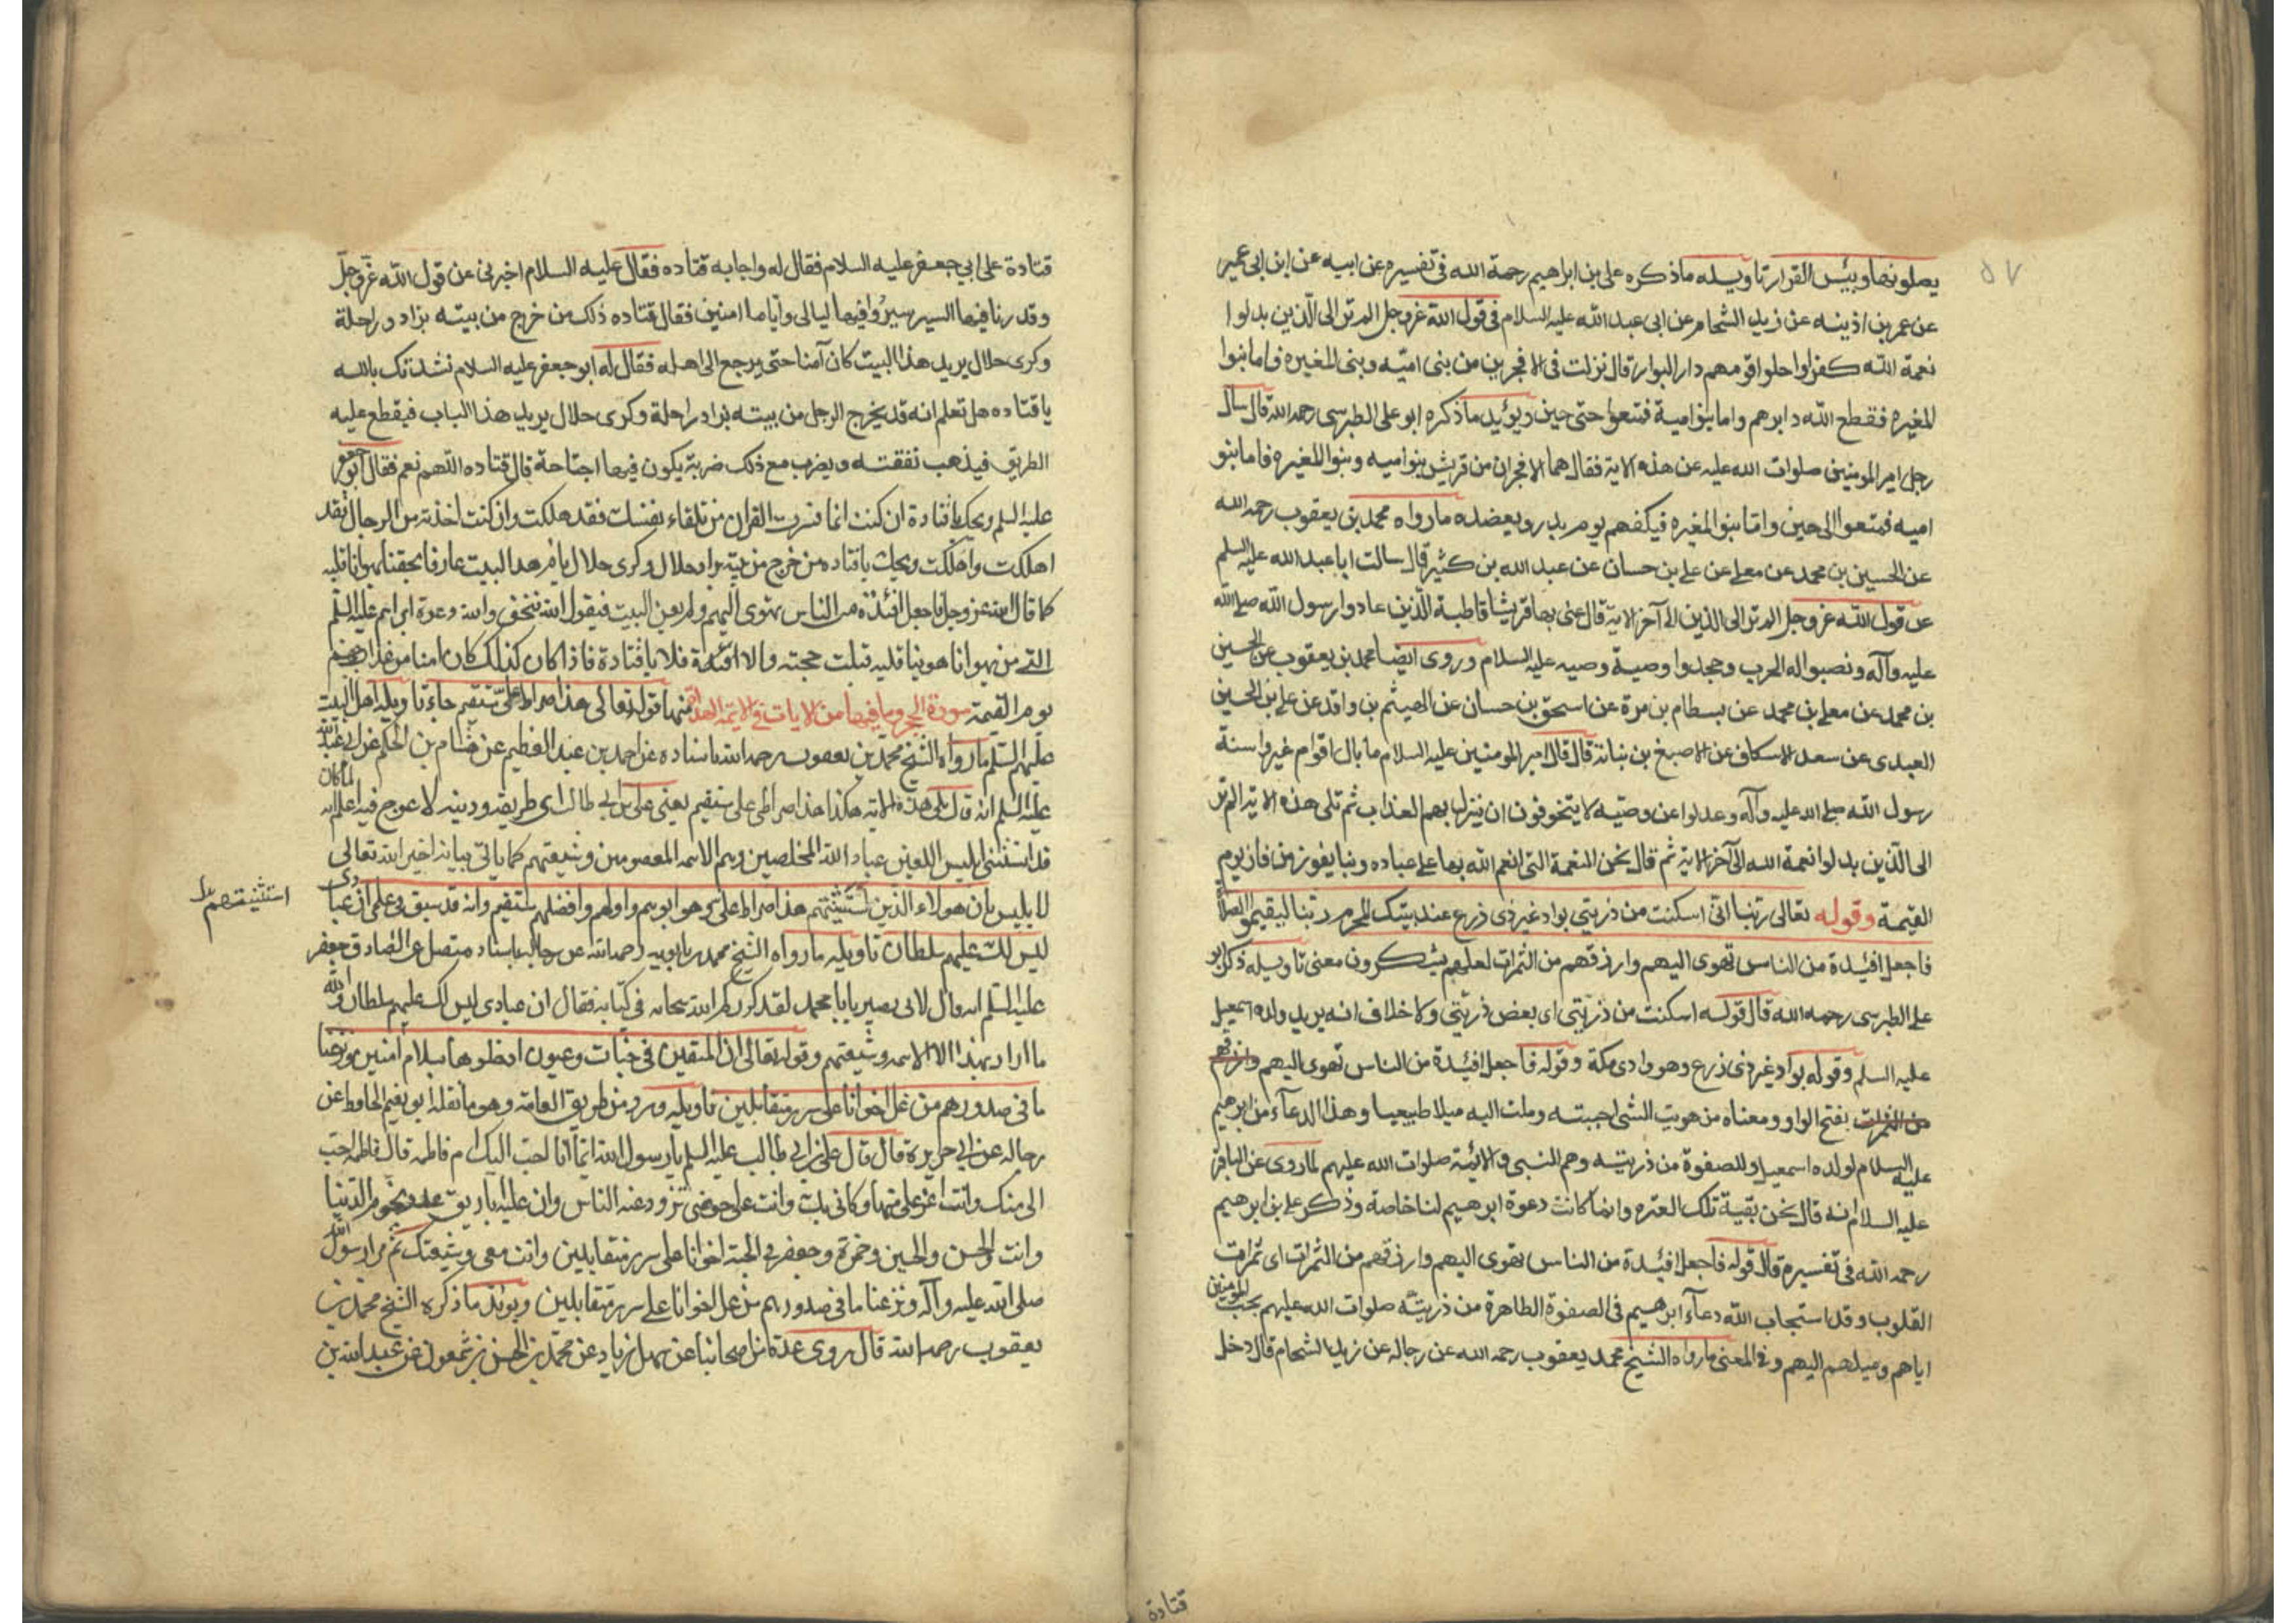 ٥٧
يصلونها وبئس القرار تاويله ماذكره على بن ابراهيم رحمة الله فى تفسيره عن ابيه عن ابن ابى عمير
عن عمر بن اذينه عن زيد الشحام عن ابى عبد الله عليه السلام فى قول الله عز وجل الم تر الى الذين بدلوا
نعمة الله كفرا واحلوا قومهم دار البوار قال نزلت فى الافجرين من بنى اميّه وبنى المغيره فاما بنوا
المغيره فقطع الله دابرهم واما بنوا امية فمتعوا حتى حين ويؤيد ماذكره ابو على الطبرسى رحمه الله قال سال
رجل امير المومنين صلوات الله عليه عن هذه الاية فقال هما الافجران من قريش بنوا اميه وبنوا المغيره فاما بنو
اميه فمتعوا الى حين واما بنوا المغيره فيكفهم يوم بدر ويعضده مارواه محمد بن يعقوب رحمه الله
عن الحسين بن محمد عن معلى عن على بن حسان عن عبد الله بن كثير قال سالت ابا عبد الله عليه السلم
عن قول الله عز وجل الم تر الى الذين الى آخر الاية قال عنى بها قريشا قاطبة الذين عادوا رسول الله صلى الله
عليه وآله ونصبوا له الحرب وجحدوا وصية وصيه عليه السلام وروى ايضا محمد بن يعقوب عن الحسين
بن محمد عن معلى بن محمد عن بسطام بن مرة عن اسحق بن حسان عن الهيثم بن واقد عن على بن الحسين
العبدى عن سعد الاسكاف عن الاصبغ بن بناته قال قال امير المومنين عليه السلام ما بال اقوام غيروا سنة
رسول الله صلى الله عليه وآله وعدلوا عن وصيه لا يتخوفون ان ينزل بهم العذاب ثم تلى هذه الاية الم تر
الى الذين بدلوا نعمة الله الى آخر الاية ثم قال نحن النعمة التى انعم الله بها على عباده وبنا يفوز من فاز يوم
القيمة وقوله تعالى ربنا انى اسكنت من ذريتي بواد غير ذى ذرع عند بيتك المحرم ربنا ليقيموا الصلاة
فاجعل افئيدة من الناس تهوى اليهم وارزقهم من الثمرات لعلهم يشكرون معنى تاويله ذكر ابو
على الطبرسى رحمه الله قال قوله اسكنت من ذريتى اى بعض ذريتى ولا خلاف انه يريد ولده اسمعيل
عليه السلم وقوله بواد غير ذى ذرع وهو وادى مكة وقوله فاجعل افئيدة من الناس تهوى اليهم وارزقهم
من الثمرات بفتح الواو ومعناه من هويت الشى احببته وملت اليه ميلا طبيعيا وهذا الدعآء من ابرهيم
عليه السلام لولده اسمعيل وللصفوة من ذريته وهم النبى والائمة صلوات الله عليهم لماروى عن الباقر
عليه السلام انه قال نحن بقية تلك العتره وانما كانت دعوة ابرهيم لنا خاصة وذكر على بن ابرهيم
رحمه الله فى تفسيره قال قوله فاجعل افئيدة من الناس تهوى اليهم وارزقهم من الثمرات اى ثمرات
القلوب وقد استجاب الله دعآء ابرهيم فى الصفوة الطاهرة من ذريته صلوات الله عليهم بحب المومنين
اياهم وميلهم اليهم وفى المعنى مارواه الشيخ محمد يعقوب رحمه الله عن رجاله عن زيد الشحام قال دخل
قتادة
قتادة على ابي جعفر عليه السلام فقال له واجابه قتاده فقال عليه السلام اخبرنى عن قول الله عز وجل
وقدرنا فيها السير سيروا فيها ليالى وأياما امنين فقال قتاده ذلك من خرج من بيته بزاد وراحلة
وكرى حلال يريد هذا البيت كان آمنا حتى يرجع الى اهله فقال له ابو جعفر عليه السلام نشدتك بالله
يا قتاده هل تعلم انه قد يخرج الرجل من بيته بزاد راحلة وكرى حلال يريد هذا الباب فيقطع عليه
الطريق فيذهب نفقته ويضرب مع ذلك ضربة يكون فيها اجتاحة قال قتاده اللهم نعم فقال ابو جعفر
عليه السلم ويحك يا قتادة ان كنت انما فسرت القران من تلقاء نفسك فقد هلكت وان كنت اخذته من الرجال فقد
اهلكت واهلكت ويحك يا قتاده من خرج من بيته بزاد حلال وكرى حلال يام هذا البيت عارفا بحقنا يهوانا قلبه
كما قال الله عز وجل فاجعل افئدة من الناس تهوى اليهم ولم يعن البيت فيقول اليه فنحن والله دعوة ابراهيم عليه السلم
التى من يهوانا هو بنا قلبه قبلت حجته والا فلا يا قتادة فاذا كان كذلك كان امنا من عذاب جهنم
يوم القيمة سورة الحجر وما فيها من الايات في الائمة الهداة منها قوله تعالى هذا صراط على مستقيم جاء تاويله اهل البيت
عليهم السلم مارواه الشيخ محمد بن يعقوب رحمه الله باسناده عن احمد بن عبد العظيم عن هشام بن الحكم عن ابى عبد الله
عليه السلم انه قال تلى هذه الاية هكذا هذا صراط على مستقيم يعنى على بن ابى طالب اى طريقه ودينه لا عوج فيه اعلم انه لما كان
قد استثنى ابليس اللعين عباد الله المخلصين وهم الائمه المعصومين وشيعتهم كما ياتى بيانه اخبر الله تعالى
لابليس بان هولاء الذين استثنيتهم هذا صراط على هو ابوهم واولهم وافضلهم مستقيم وانه قد سبق فى علمى ان عبادى
استثنيتهم
ليس لك عليهم سلطان تاويله مارواه الشيخ محمد بن بابويه رحمه الله عن رجاله باسناد متصل عن الصادق جعفر
عليه السلم انه قال لابى بصير يا با محمد لقد ذكركم الله سبحانه فى كتابه فقال ان عبادى ليس لك عليهم سلطان والله
ما اراد بهذا الا الائمه وشيعتهم وقوله تعالى ان المتقين فى جنات وعيون ادخلوها بسلام آمنين ونزعنا
ما فى صدورهم من غل اخوانا على سرر متقابلين تاويله ورد من طريق العامة وهو ما نقله ابو نعيم الحافظ عن
رجاله عن ابى هريرة قال قال على بن ابي طالب عليه السلم يا رسول الله ايما انا احب اليك ام فاطمه قال فاطمه احب
الى منك وانت اعز على منها وكانى بك وانت على حوضى تزود عنه الناس وان عليه اباريق عدد نجوم الدنيا
وانت والحسن والحسين وحمزة وجعفر فى الجنة اخوانا على سرر متقابلين وانت معى وشيعتك ثم قرا رسول الله
صلى الله عليه وآله ونزعنا ما فى صدورهم من غل اخوانا على سرر متقابلين ويؤيد ماذكره الشيخ محمد بن
يعقوب رحمه الله قال روى عدة من اصحابنا عن سهل بن زياد عن محمد بن الحسن بن شمعون عن عبد الله بن